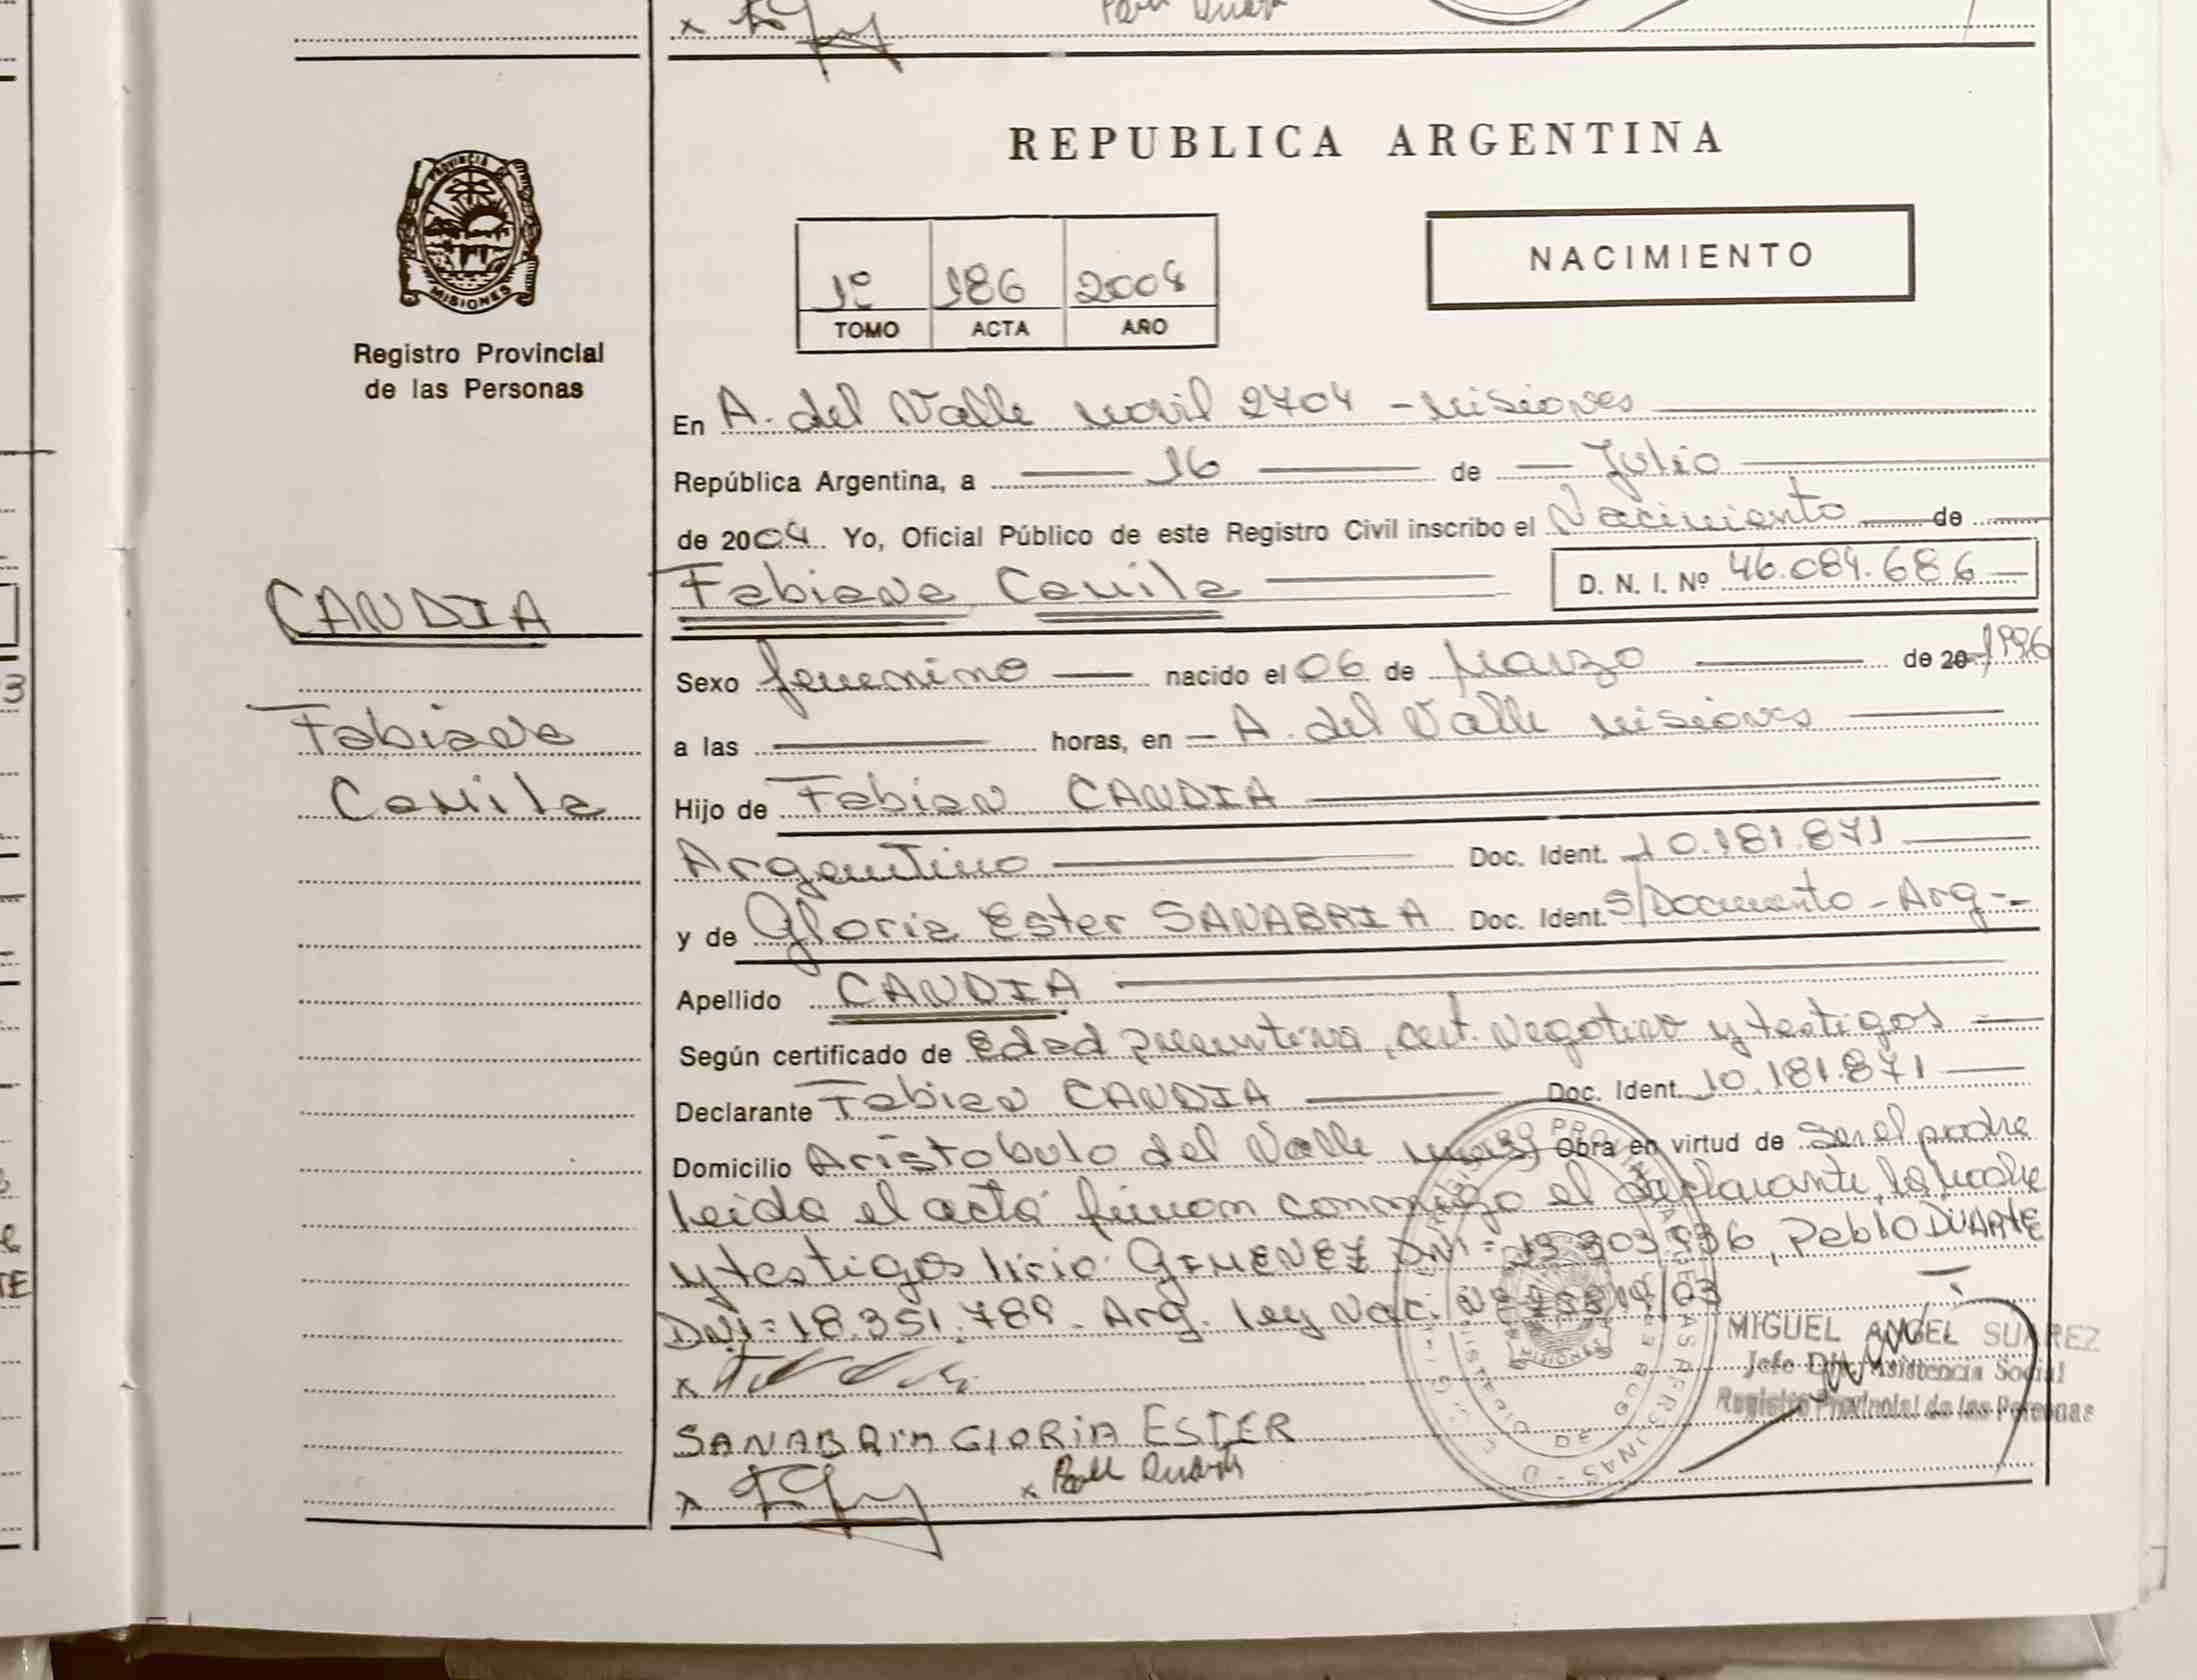 REPUBLICA ARGENTINA
PROVINCIA
MISIONES
Registro Provincial
de las Personas
NACIMIENTO
1º 186 2004
TOMO ACTA AÑO
En A. del Valle movil 2704 - Misiones
República Argentina, a 16 de Julio
de 2004. Yo, Oficial Público de este Registro Civil inscribo el Nacimiento de
CANDIA
Fabiana Camila D. N. I. Nº 46.084.686
Sexo femenino nacido el 06 de Marzo de 20 1996
Fabiana
a las horas, en A. del Valle Misiones
Camila
Hijo de Fabian CANDIA
Argentino Doc. Ident. 10.181.871
y de Gloria Ester SANABRIA Doc. Ident. S/Documento - Arg -
Apellido CANDIA
Según certificado de Edad presuntiva, cert. Negativo y testigos
Declarante Fabian CANDIA Doc. Ident. 10.181.871
Domicilio Aristobulo del Valle Obra en virtud de Ser el padre
leida el acta firman conmigo el declarante, la madre
y testigos lirio GIMENEZ DNI = Pablo DUARTE
DNI = 18.351.789 - Arg. ley Nac.
MIGUEL ANGEL SUAREZ
Jefe Asistencia Social
Registro Provincial de las Personas
SANABRIA GLORIA ESTER